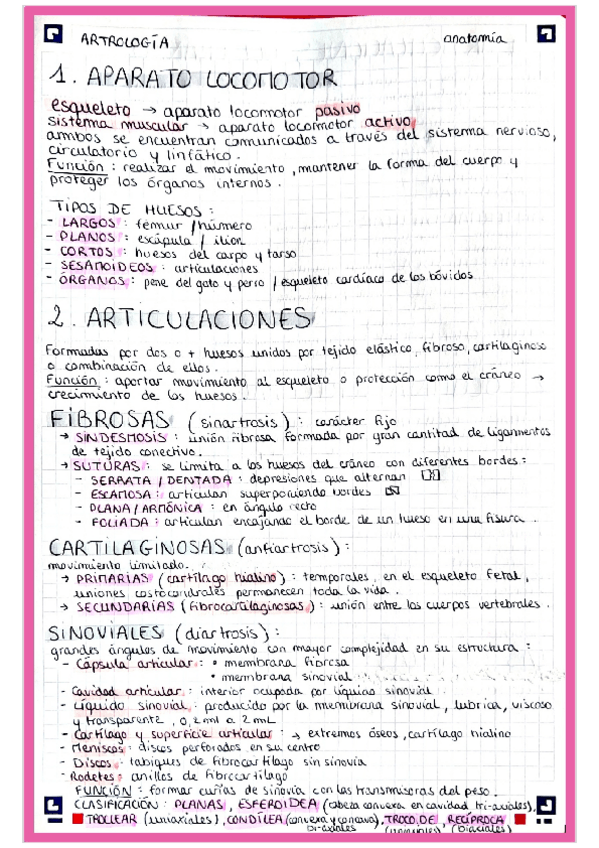 ARTROLOGÍA anatomía
1. APARATO LOCOMOTOR
esqueleto → aparato locomotor pasivo
sistema muscular → aparato locomotor activo,
ambos se encuentran comunicados a través del sistema nervioso,
circulatorio y linfático.
Función : realizar el movimiento, mantener la forma del cuerpo y
proteger los órganos internos.
TIPOS DE HUESOS :
- LARGOS : fémur / húmero
- PLANOS : escápula / ilion
- CORTOS : huesos del carpo y tarso
- SESAMOIDEOS : articulaciones
- ÓRGANOS : pene del gato y perro / esqueleto cardíaco de los bóvidos
2. ARTICULACIONES
Formadas por dos o + huesos unidos por tejido elástico, fibroso, cartilaginoso
o combinación de ellos.
Función : aportar movimiento al esqueleto o protección como el cráneo →
crecimiento de los huesos.
FIBROSAS (sinartrosis) : carácter fijo
→ SINDESMOSIS : unión fibrosa formada por gran cantidad de ligamentos
de tejido conectivo.
→ SUTURAS : se limita a los huesos del cráneo con diferentes bordes :
- SERRATA / DENTADA : depresiones que alternan
- ESCAMOSA : articulan superponiendo bordes
- PLANA / ARMÓNICA : en ángulo recto
- FOLIADA : articulan encajando el borde de un hueso en una fisura .
CARTILAGINOSAS (anfiartrosis) :
movimiento limitado.
→ PRIMARIAS (cartílago hialino) : temporales, en el esqueleto fetal,
uniones costocondrales permanecen toda la vida .
→ SECUNDARIAS (fibrocartilaginosas) : unión entre los cuerpos vertebrales .
SINOVIALES (diartrosis) :
grandes ángulos de movimiento con mayor complejidad en su estructura :
- Cápsula articular : • membrana fibrosa
• membrana sinovial
- Cavidad articular : interior ocupada por líquido sinovial
- Líquido sinovial : producido por la membrana sinovial, lubrica, viscoso
y transparente , 0,2 ml a 2 mL
- Cartílago y superficie articular : → extremos óseos, cartílago hialino
- Meniscos : discos perforados en su centro
- Discos : tabiques de fibrocartílago sin sinovia
- Rodetes : anillos de fibrocartílago
FUNCIÓN : formar cuñas de sinovia con las transmisoras del peso .
CLASIFICACIÓN : PLANAS, ESFEROIDEA (cabeza convexa en cavidad tri-axiales),
TROCLEAR (uniaxiales), CONDÍLEA (convexa y cóncava), TROCOIDE, RECÍPROCA
bi-axiales (uniaxiales) (biaxiales)